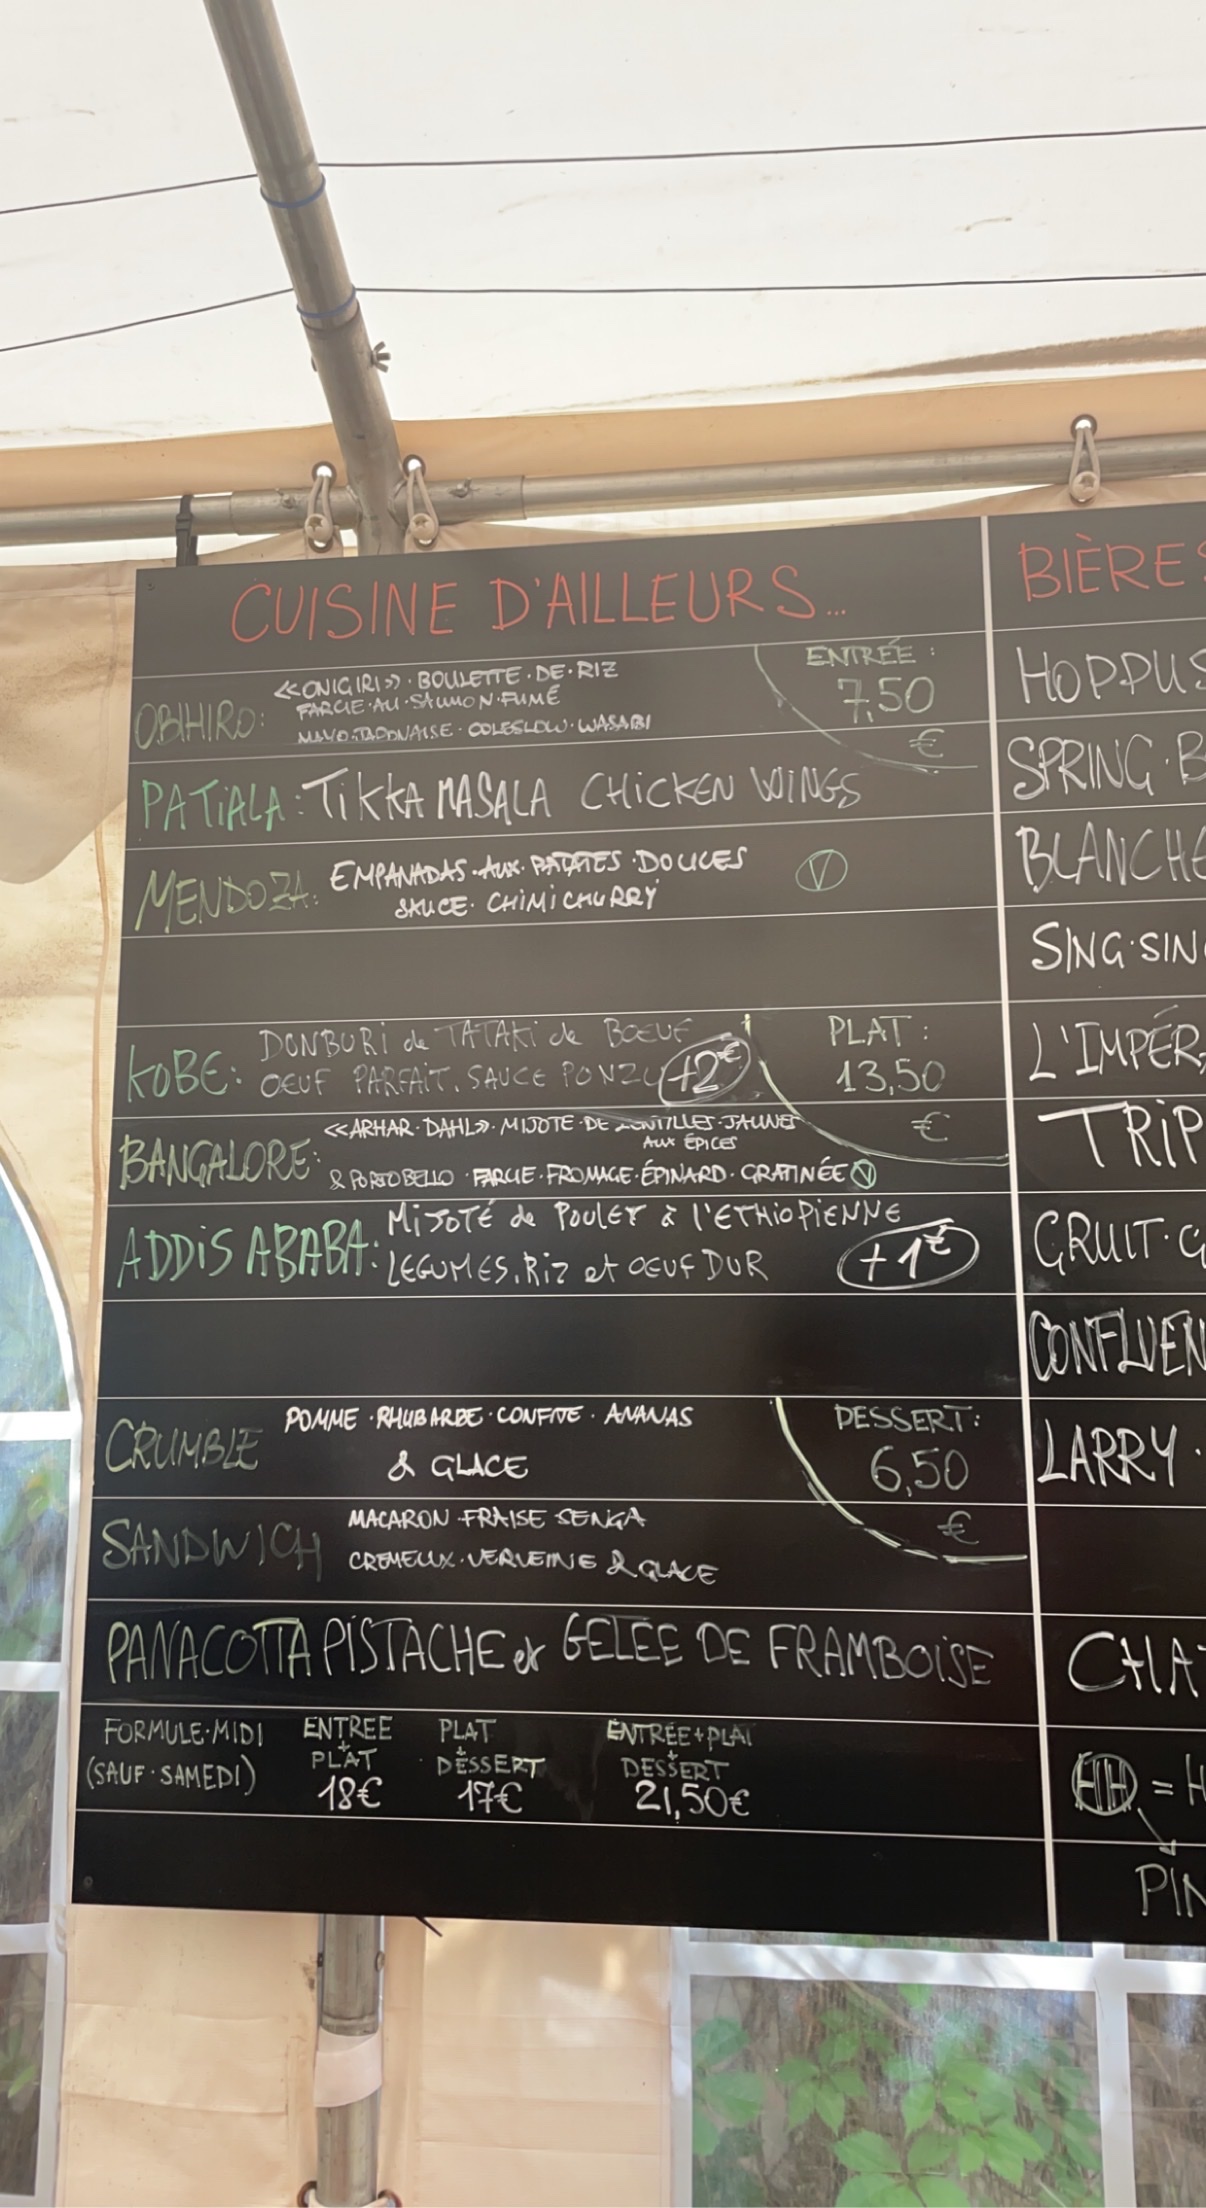 CUISINE D'AILLEURS...
ENTRÉE :
7,50
€
OBIHIRO: «ONIGIRI»·BOULETTE·DE·RIZ
FARCIE·AU·SAUMON·FUMÉ
MAYO·JAPONAISE·COLESLOW·WASABI
PATIALA: TIKKA MASALA CHICKEN WINGS
MENDOZA: EMPANADAS·AUX·PATATES·DOUCES
SAUCE·CHIMICHURRY
V
PLAT:
13,50
€
KOBE: DONBURI de TATAKI de BOEUF
OEUF PARFAIT, SAUCE PONZU +2€
BANGALORE: «ARHAR·DAHL»·MIJOTE·DE·LENTILLES·JAUNES
AUX ÉPICES
& PORTOBELLO·FARCIE·FROMAGE·ÉPINARD·GRATINÉE V
ADDIS ABABA: MIJOTÉ de POULET à L'ETHIOPIENNE
LEGUMES, RIZ et OEUF DUR +1€
DESSERT:
6,50
€
CRUMBLE POMME·RHUBARBE·CONFITE·ANANAS
& GLACE
SANDWICH MACARON·FRAISE SENGA
CREMEUX·VERVEINE & GLACE
PANACOTTA PISTACHE et GELÉE DE FRAMBOISE
FORMULE·MIDI
(SAUF·SAMEDI)
ENTREE
+
PLAT
18€
PLAT
+
DESSERT
17€
ENTRÉE+PLAT
+
DESSERT
21,50€
BIÈRES
HOPPUS
SPRING·B
BLANCHE
SING·SIN
L'IMPÉR
TRIP
GRUIT·G
CONFLUEN
LARRY·
CHAT
HH = H
PIN